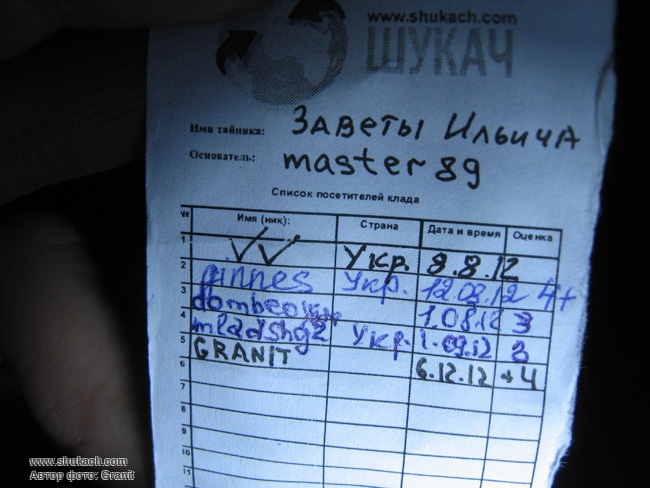 www.shukach.com
ШУКАЧ
Имя тайника: Заветы Ильича
Основатель: master 89
Список посетителей клада
№ Имя (ник): Страна Дата и время Оценка
1 VV Укр. 8.8.12
2 ginnes Укр. 12.08.12 4+
3 1.08.12 3
4 Укр. 1.09.12 3
5 GRANIT 6.12.12 +4
6
7
8
9
10
11
www.shukach.com
Автор фото: Granit